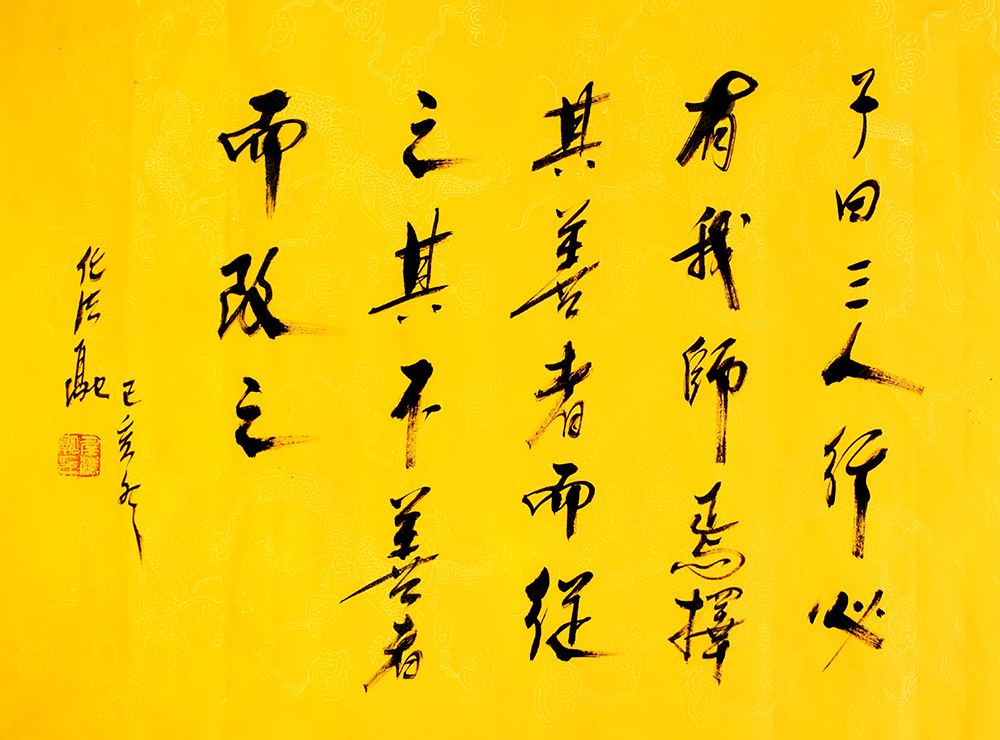 子曰三人行必
有我師焉擇
其善者而從
之其不善者
而改之
己亥冬